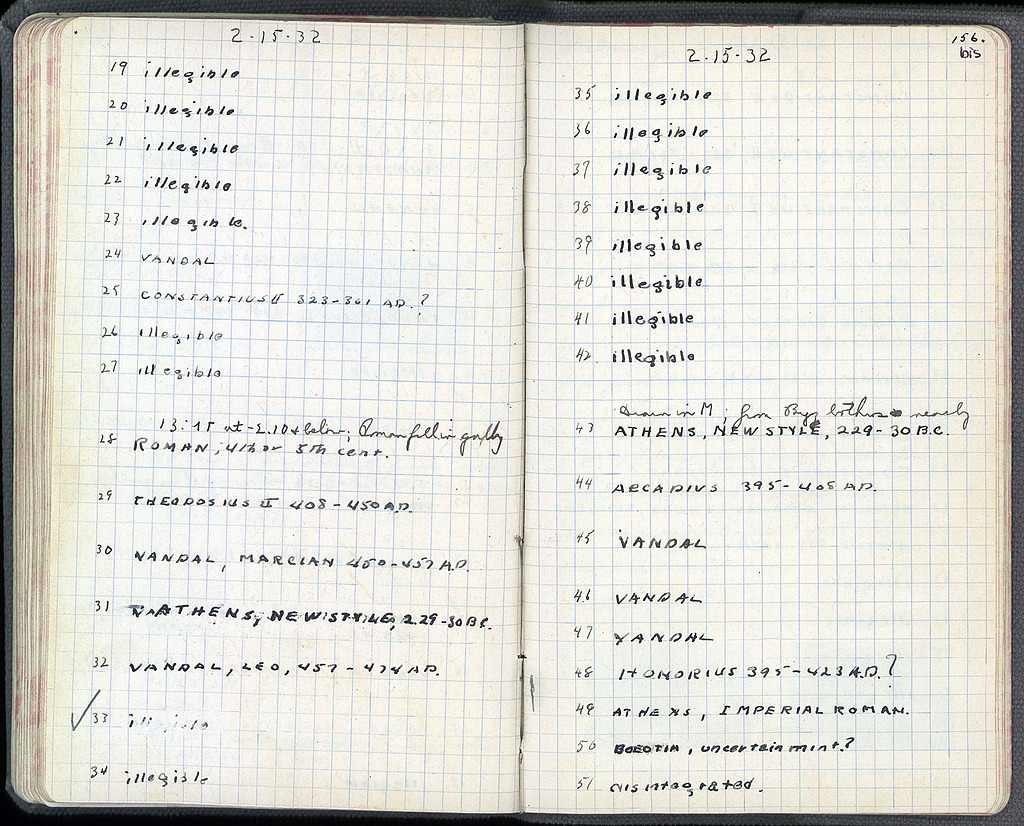 2-15-32
19 illegible
20 illegible
21 illegible
22 illegible
23 illegible.
24 VANDAL
25 CONSTANTIUS II 323-361 AD.?
26 illegible
27 illegible
13:15 at -2.10 & below; Roman fill in gully
28 ROMAN; 4th or 5th cent.
29 THEODOSIUS II 408-450 AD.
30 VANDAL, MARCIAN 450-457 A.D.
31 ATHENS, NEW STYLE, 229-30 B.C.
32 VANDAL, LEO, 457-474 AD.
✓ 33 illegible
34 illegible
156.
bis
2-15-32
35 illegible
36 illegible
37 illegible
38 illegible
39 illegible
40 illegible
41 illegible
42. illegible
Drain in M; from Byz bothros nearby
43 ATHENS, NEW STYLE, 229-30 B.C.
44 ARCADIUS 395-408 AD.
45 VANDAL
46 VANDAL
47 VANDAL
48 HONORIUS 395-423 A.D.?
49 ATHENS, IMPERIAL ROMAN.
50 BOEOTIA, uncertain mint.?
51 disintegrated.